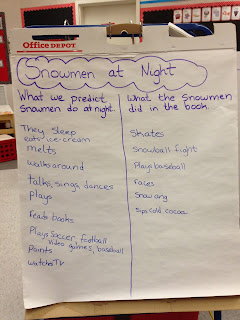 Office DEPOT
Snowmen at Night
What we predict
Snowmen do at night.
They sleep
eat ice-cream
melts
walks around
talks, sings, dances
plays
reads books
Plays Soccer, football
Video games, baseball
Paints
watches TV
What the Snowmen
did in the book.
Skates
Snowball fight
Plays baseball
races
Snow ang
Sips cold cocoa